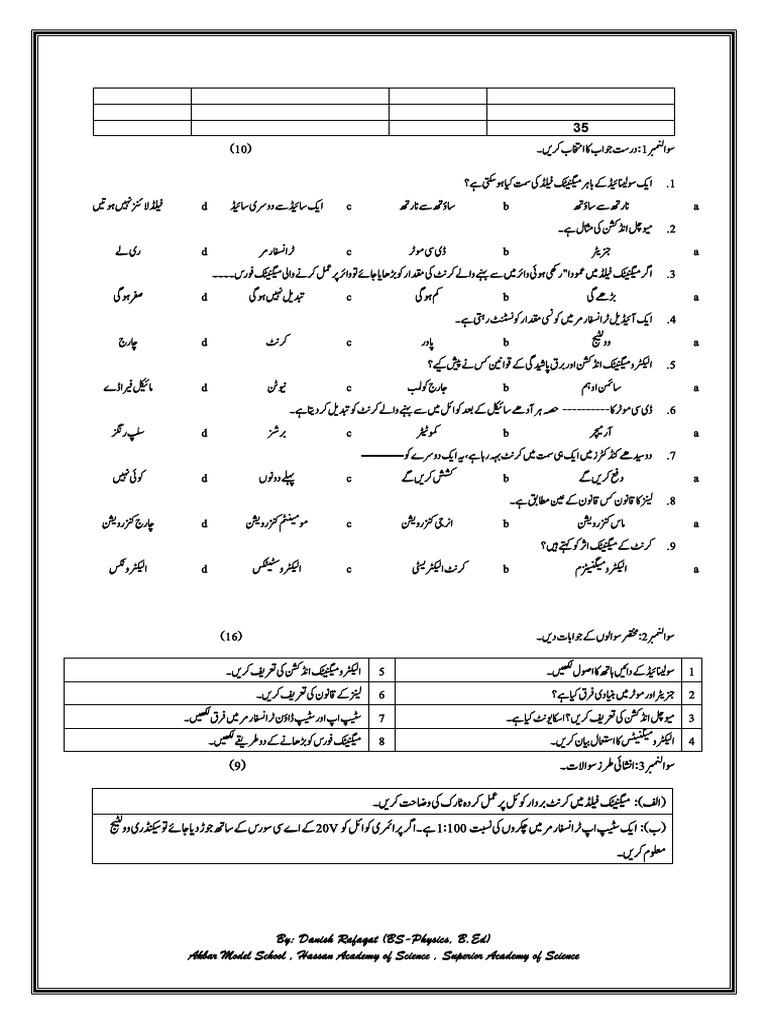 35
سوالنمبر 1: درست جواب کا انتخاب کریں۔ (10)
1. ایک سولینائیڈ کے باہر میگنیٹک فیلڈ کی سمت کیا ہو سکتی ہے؟
a نارتھ سے ساؤتھ b ساؤتھ سے نارتھ c ایک سائیڈ سے دوسری سائیڈ d فیلڈ لائنز نہیں ہوتیں
2. میوچل انڈکشن کی مثال ہے۔
a جنریٹر b ڈی سی موٹر c ٹرانسفارمر d ری لے
3. اگر میگنیٹک فیلڈ میں عمودا" رکھی ہوئی وائر میں سے بہنے والے کرنٹ کی مقدار کو بڑھایا جائے تو وائر پر عمل کرنے والی میگنیٹک فورس۔۔۔۔
a بڑھے گی b کم ہو گی c تبدیل نہیں ہو گی d صفر ہو گی
4. ایک آئیڈیل ٹرانسفارمر میں کونسی مقدار کونسٹنٹ رہتی ہے۔
a وولٹیج b پاور c کرنٹ d چارج
5. الیکٹرو میگنیٹک انڈکشن اور برق پاشیدگی کے قوانین کس نے پیش کیے؟
a سائمن اوہم b چارج کولب c نیوٹن d مائیکل فیراڈے
6. ڈی سی موٹر کا---------- حصہ ہر آدھے سائیکل کے بعد کوائل میں سے بہنے والے کرنٹ کو تبدیل کر دیتا ہے۔
a آرمیچر b کموٹیٹر c برشز d سلپ رنگز
7. دو سیدھے کنڈکٹرز میں ایک ہی سمت میں کرنٹ بہہ رہا ہے، یہ ایک دوسرے کو ــــــــــــ
a دفع کریں گے b کشش کریں گے c پہلے دونوں d کوئی نہیں
8. لینز کا قانون کس قانون کے عین مطابق ہے۔
a ماس کنزرویشن b انرجی کنزرویشن c مومینٹم کنزرویشن d چارج کنزرویشن
9. کرنٹ کے میگنیٹک اثر کو کہتے ہیں؟
a الیکٹرو میگنیٹزم b کرنٹ الیکٹریسٹی c الیکٹروسٹیٹکس d الیکٹرونکس
سوالنمبر 2: مختصر سوالوں کے جوابات دیں۔ (16)
1 سولینائیڈ کے دائیں ہاتھ کا اصول لکھیں۔ 5 الیکٹرو میگنیٹک انڈکشن کی تعریف کریں۔
2 جنریٹر اور موٹر میں بنیادی فرق کیا ہے؟ 6 لینز کے قانون کی تعریف کریں۔
3 میوچل انڈکشن کی تعریف کریں؟ اسکا یونٹ کیا ہے۔ 7 سٹیپ اپ اور سٹیپ ڈاؤن ٹرانسفارمر میں فرق لکھیں۔
4 الیکٹرو میگنیٹس کا استعمال بیان کریں۔ 8 میگنیٹک فورس کو بڑھانے کے دو طریقے لکھیں۔
سوالنمبر 3: انشائی طرز سوالات۔ (9)
(الف): میگنیٹک فیلڈ میں کرنٹ بردار کوئل پر عمل کردہ ٹارک کی وضاحت کریں۔
(ب): ایک سٹیپ اپ ٹرانسفارمر میں چکروں کی نسبت 1:100 ہے۔ اگر پرائمری کوائل کو 20V کے اے سی سورس کے ساتھ جوڑ دیا جائے تو سیکنڈری وولٹیج
معلوم کریں۔
By: Danish Rafaqat (BS-Physics, B.Ed)
Akbar Model School , Hassan Academy of Science , Superior Academy of Science